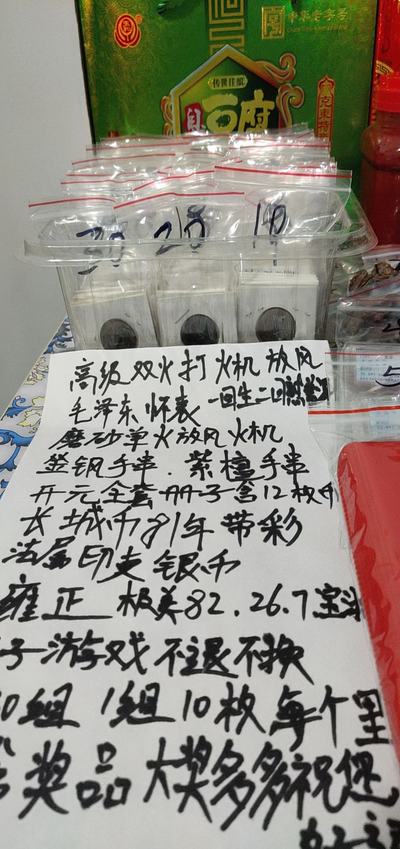 中华老字号
传世佳酿
豆府
30 20 10
5
高级双火打火机放风
毛泽东怀表 一回生二回熟
磨砂单火放风火机
金钢手串.紫檀手串
开元全套册子含12枚币
长城币81年带彩
法属印支银币
雍正 极美82.26.7宝
子游戏不退不换
0组 1组10枚每个里
奖品大奖多多祝您